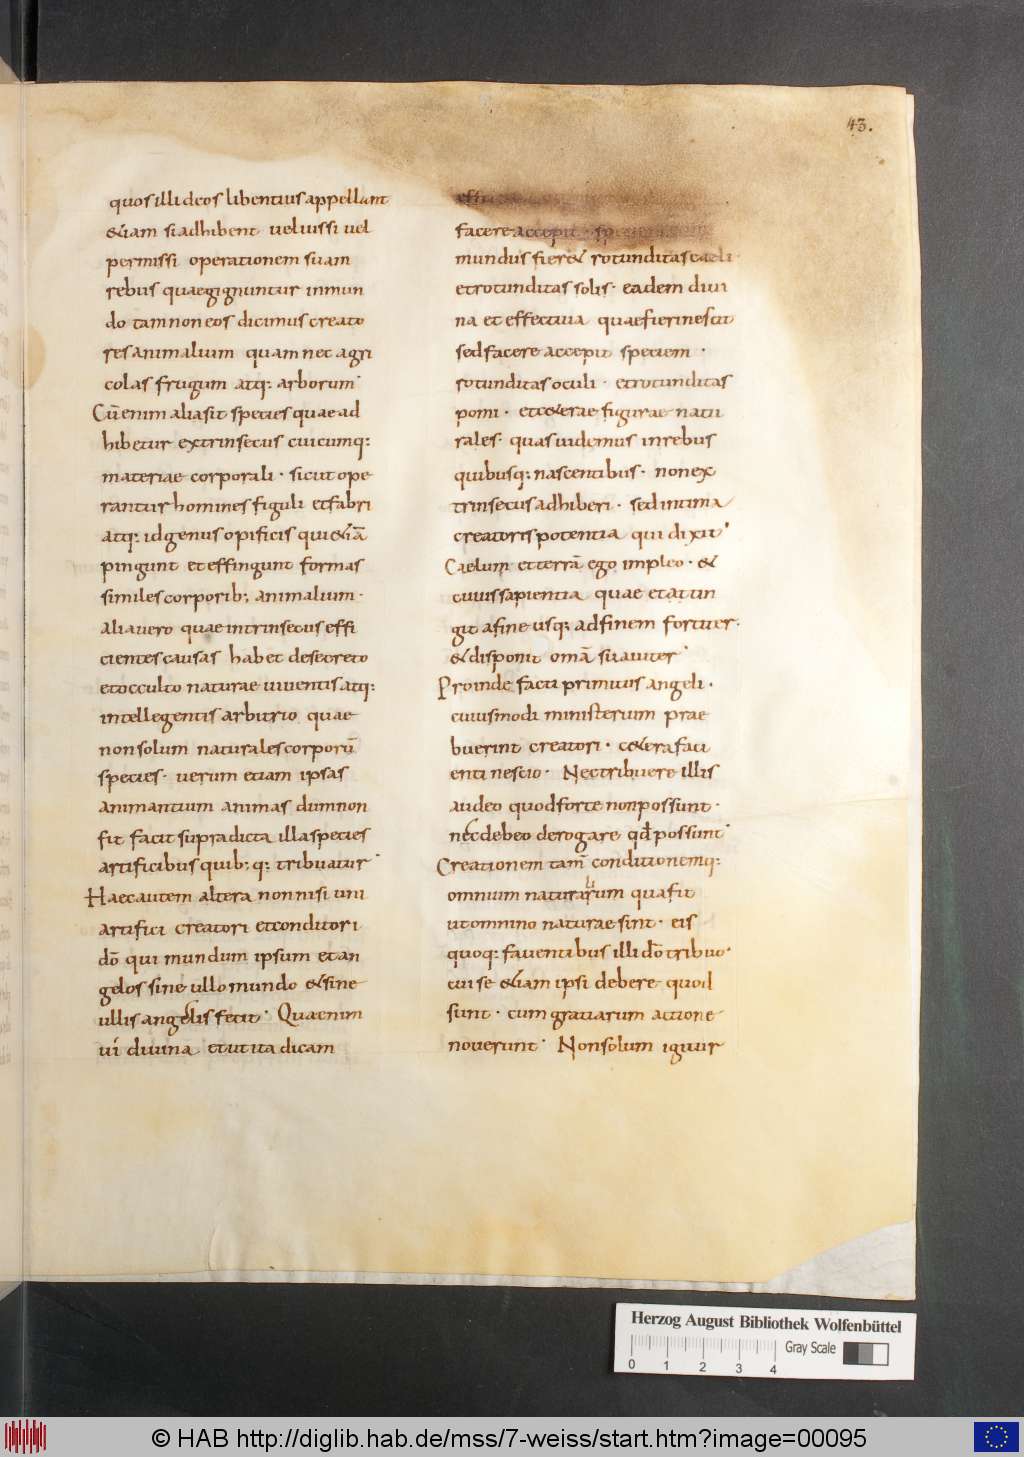 43.
quos illi deos libentius appellant
&iam si adhibent uel iussi uel
permissi operationem suam
rebus quae gignuntur in mun
do tam non eos dicimus creato
res animalium quam nec agri
colas frugum atq: arborum·
Cū enim alia sit species quae ad
hibetur extrinsecus cuicumq:
materiae corporali · sicut ope
rantur homines figuli et fabri
atq: id genus opificis qui &iā
pingunt et effingunt formas
similes corporib; animalium·
alia uero quae intrinsecus effi
cientes causas habet de secreto
et occulto naturae uiuentis atq:
intellegentis arbitrio quae
non solum naturales corporū
species· uerum etiam ipsas
animantium animas dum non
fit facit supra dicta illa species
artificibus quib; q: tribuatur·
Haec autem altera non nisi uni
artifici creatori et conditori
dō qui mundum ipsum et an
gelos sine ullo mundo & sine
ullis angelis fecit· Qua enim
ui diuina et ut ita dicam
facere accepit ·
mundus fier& rotunditas caeli·
et rotunditas solis· eadem diui
na et effectiua quae fieri nescit
sed facere accepit speciem ·
rotunditas oculi · et rotunditas
pomi · et c&erae figurae natu
rales· quas uidemus in rebus
quibusq: nascentibus· non ex
trinsecus adhiberi · sed intima
creatoris potentia qui dixit·
Caelum et terrā ego impleo · &
cuius sapientia quae et attin
git a fine usq: ad finem fortiter·
& disponit omā suauiter·
Proinde facti primitus angeli ·
cuiusmodi ministerium prae
buerint creatori · c&era faci
enti nescio· Nec tribuere illis
audeo quod forte non possunt·
nec debeo derogare qđ possunt·
Creationem tam̄ conditionemq:
omnium naturarum qua fit
ut omnino naturae sint· eis
quoq: fauentibus illi dō tribuo·
cui se &iam ipsi debere quod
sunt · cum gratiarum actione
nouerunt· Non solum igitur
Herzog August Bibliothek Wolfenbüttel
Gray Scale
0 1 2 3 4
© HAB http://diglib.hab.de/mss/7-weiss/start.htm?image=00095